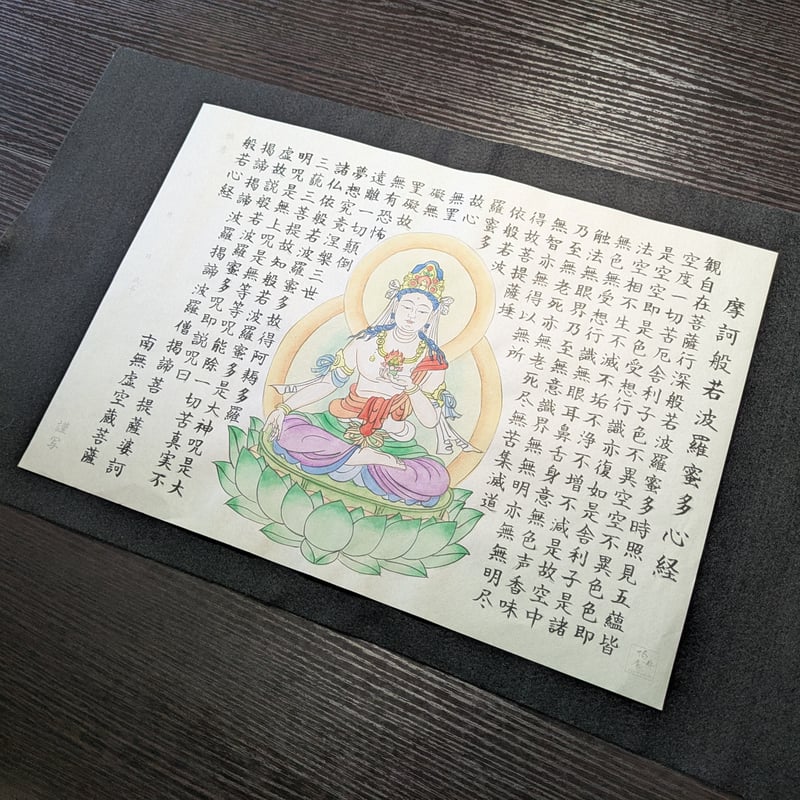 摩訶般若波羅蜜多心経
観自在菩薩行深般若波羅蜜多時照見五蘊皆
空度一切苦厄舎利子色不異空空不異色色即
是空空即是色受想行識亦復如是舎利子是諸
法空相不生不滅不垢不浄不増不減是故空中
無色無受想行識無眼耳鼻舌身意無色声香味
触法無眼界乃至無意識界無無明亦無無明尽
乃至無老死亦無老死尽無苦集滅道
無智亦無得以無所
得故菩提薩埵
依般若波
羅蜜多
故心
無罣
礙無
罣礙故
無有恐怖
遠離一切顛倒
夢想究竟涅槃三世
諸仏依般若波羅蜜多故得阿耨多羅
三藐三菩提故知般若波羅蜜多是大神呪是大
明呪是無上呪是無等等呪能除一切苦真実不
虚故説般若波羅蜜多呪即説呪曰
揭諦揭諦波羅揭諦波羅僧揭諦菩提薩婆訶
般若心経
南無虚空蔵菩薩
謹写